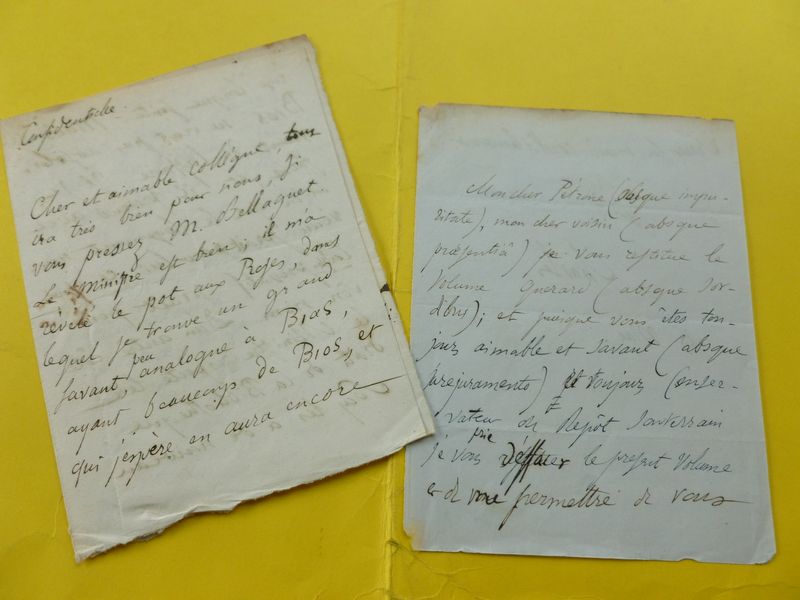 Confidentielle.
Cher et aimable collègue, tous
ira très bien pour nous, si
vous pressez M. Bellaguet.
Le Ministre est bien; il m'a
révélé le pot aux Roses, dans
lequel je trouve un grand
savant, peu analogue à Bias,
ayant beaucoup de Bios, et
qui j'espère en aura encore
Mon cher Pétrone (absque impu-
ritate), mon cher voisin (absque
præsentiâ) je vous restitue le
Volume Guerard (absque sor-
dibus); et puisque vous êtes tou-
jours aimable et savant (absque
jurejuramento) et toujours Conser-
vateur du Dépôt souterrain
je vous prie d'effacer le present Volume
et de me permettre de vous